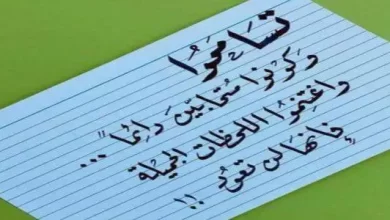 تسامحوا
وكونوا متحابين دائمًا ...
واغتنموا اللحظات الجميلة
فإنها لن تعود !!